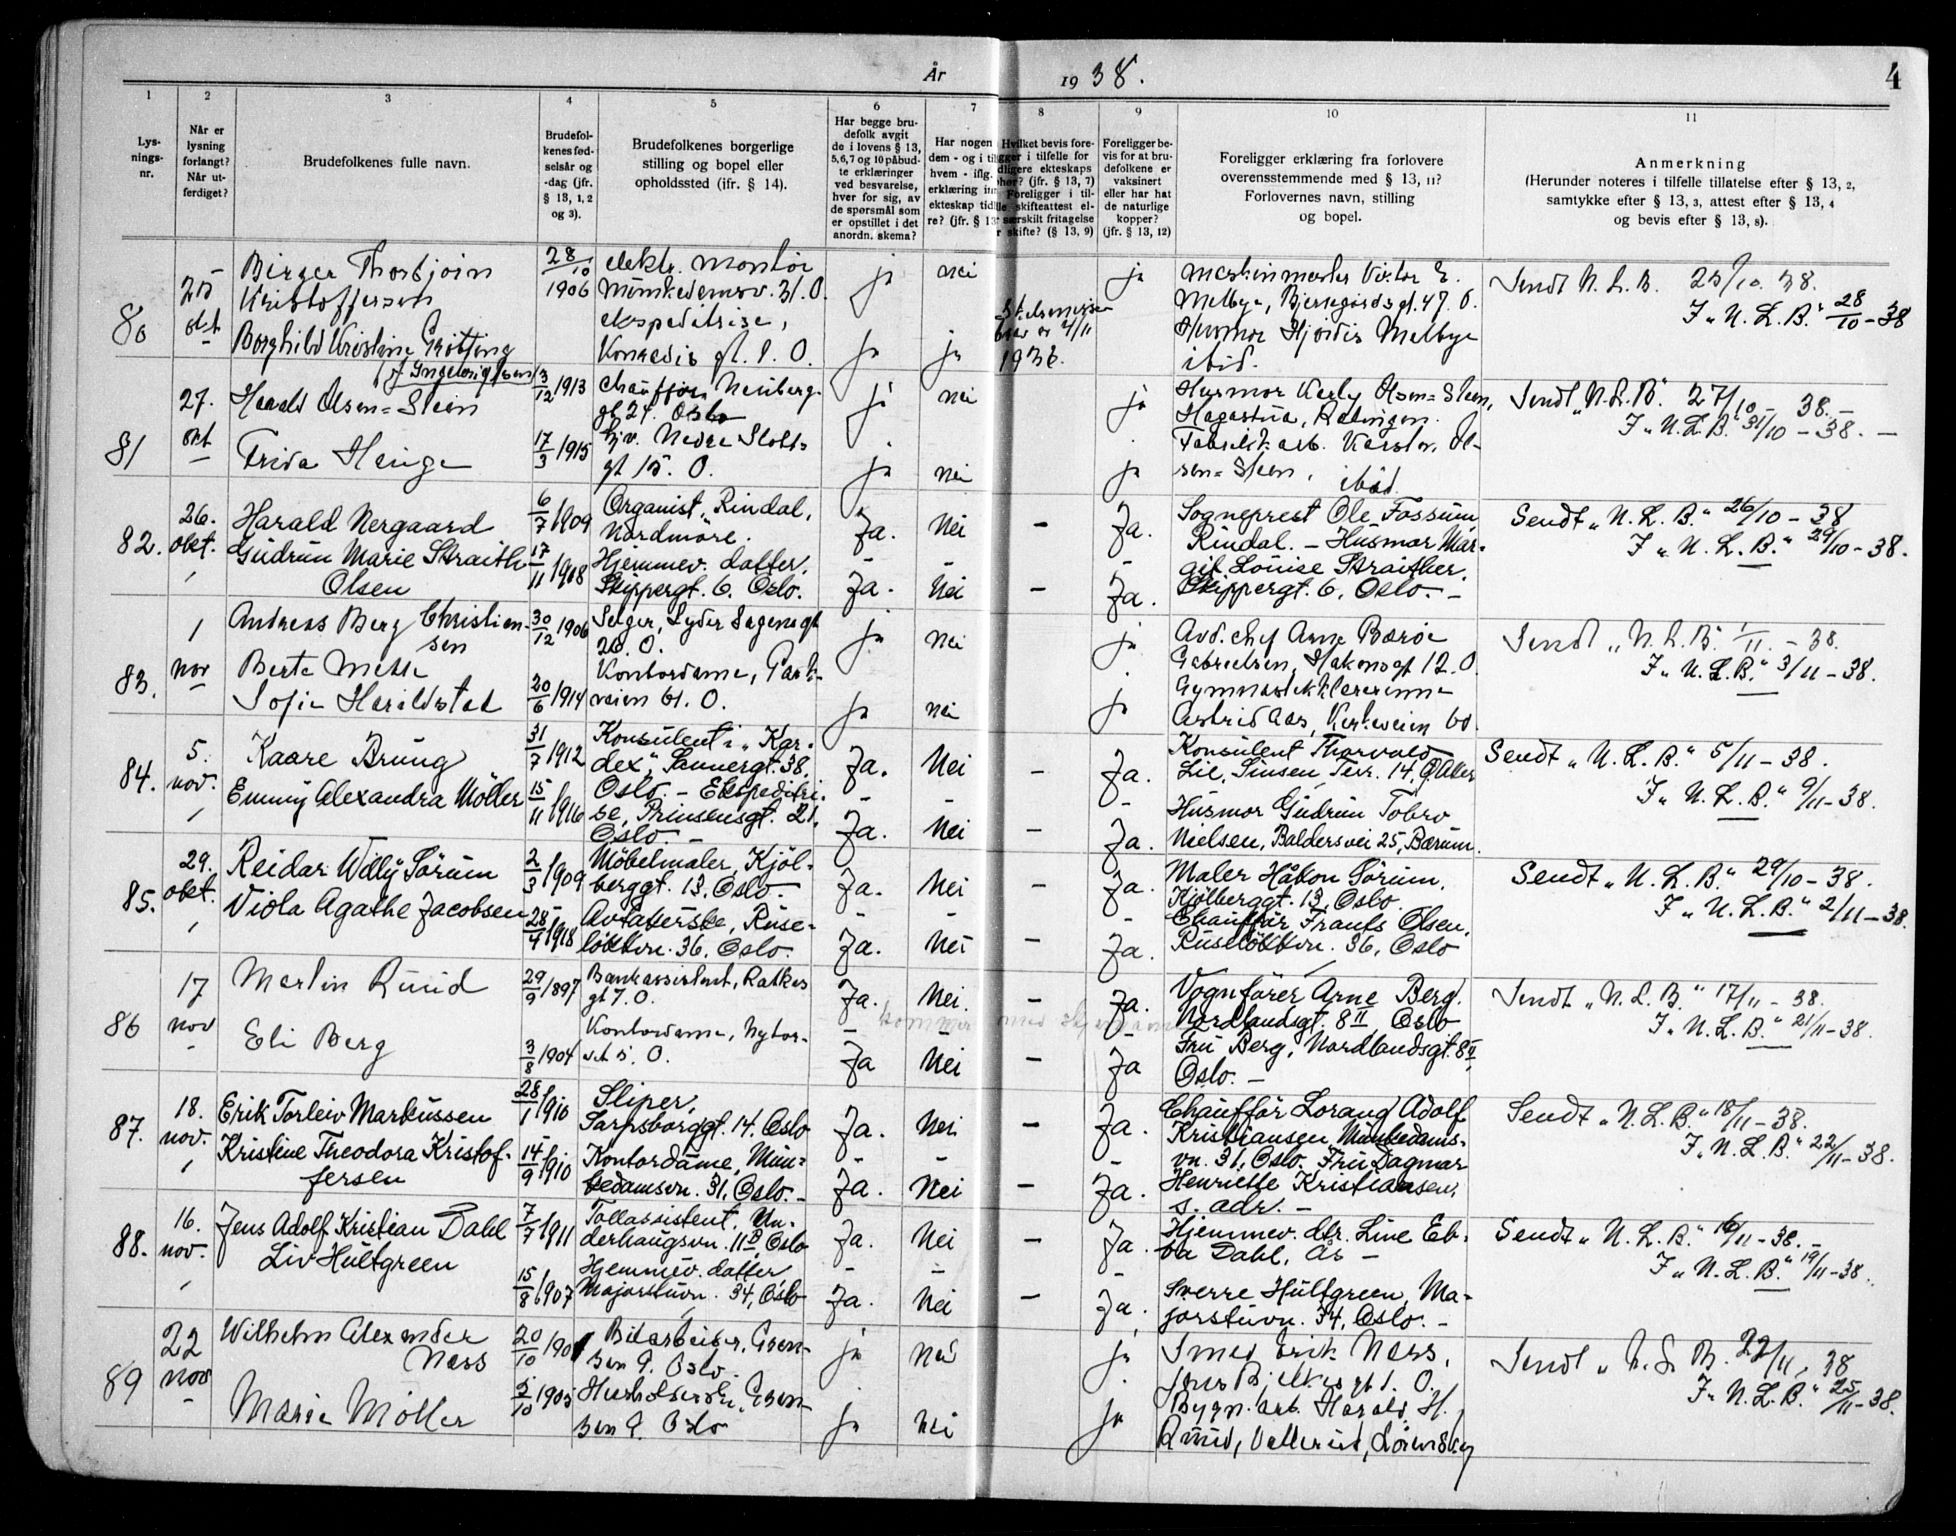 År 1938.
4
1
2
3
4
5
6
7
8
9
10
11
Lys-
nings-
nr.
Når er
lysning
forlangt?
Når ut-
ferdiget?
Brudefolkenes fulle navn.
Brudefol-
kenes fød-
selsår og
-dag (jfr.
§ 13, 1, 2
og 3).
Brudefolkenes borgerlige
stilling og bopel eller
opholdssted (ifr. § 14).
Har begge bru-
defolk avgit
de i lovens § 13,
5,6,7 og 10 påbud-
te erklæringer
ved besvarelse,
hver for sig, av
de spørsmål som
er opstillet i det
anordn. skema?
Har nogen
dem - og i til
hvem - iflg.
erklæring in
ekteskap tid
re? (jfr. § 13
Hvilket bevis fore-
ligger i tilfelle for
tidligere ekteskaps
ophør? (jfr. § 13, 7)
Foreligger i til-
felle skifteattest el-
særskilt fritagelse
r skifte? (§ 13, 9)
Foreligger be-
vis for at bru-
defolkene er
vaksinert
eller har hat
de naturlige
kopper?
(jfr. § 13, 12)
Foreligger erklæring fra forlovere
overensstemmende med § 13, 11?
Forlovernes navn, stilling
og bopel.
Anmerkning
(Herunder noteres i tilfelle tillatelse efter § 13, 2,
samtykke efter § 13, 3, attest efter § 13, 4
og bevis efter § 13, 8).
80
25
okt
Birger Thorbjørn
Kristoffersen
Borghild Kristine Grötting
28/10
1906
elektr. montör
Munkedamsv. 31. O.
ekspeditrise,
gt. 1. O.
ja
nei
ja
ja
1936.
ja
Maskinmester Viktor E.
Melbye, Bjerregårdsgt. 47. O.
Husmor Hjördis Melbye
ibid.
Sendt N. L. B. 25/10. 38.
I „N. L. B.“ 28/10 - 38
81
27.
okt
Harald Olsen=Steen
Frida Hauge
3/12 1913
17/3 1915
chauffør, Neuberg-
gt. 24. Oslo
Hjv. Nedre Slotts-
gt 15. O.
ja
nei
ja
nei
ja
ja
Husmor Karly Olsen=Steen,
Hagastua, Rælingen.
Fabrikkarb. Karsten Ol-
sen=Steen, ibid.
Sendt „N. L. B.“ 27/10 - 38. -
I „N. L. B.“ 31/10 - 38. -
82.
26.
okt.
Harald Nergaard
Gudrun Marie Straith-
Olsen
6/7 1909
17/11 1908
Organist, Rindal,
Nordmöre.
Hjemmev. datter.
Skippergt. 6. Oslo.
Ja.
Nei
-
Ja.
Nei
-
Ja.
Ja.
Sogneprest Ole Fossum,
Rindal. - Husmor Mar-
git Louise Straither.
Skippergt. 6, Oslo. -
Sendt „N. L. B.“ 26/10 - 38
I „N. L. B.“ 29/10 - 38.
83.
1
nov
Andreas Berg Christien-
sen
Berta
Sofie Haraldstad
30/12 1906
20/6 1914
Selger, Lyder Sagensgt
26. O.
Kontordame,
veien 61. O.
ja
nei
ja
nei
ja
ja
Avd. chef Arne Barøe
Gabrielsen, Håkonsgt 12. O.
Gymnastikklærerinne
Astrid Aas, Kirkeveien 60.
Sendt „N. L. B.“ 1/11 - 38.
I „N. L. B.“ 3/11 - 38.
84.
5.
nov.
Kaare Brung
Emmy Alexandra Möller
31/7 1912
15/11 1916
Konsulent i „Kar-
dex“, Sannergt. 38.
Oslo. - Ekspeditri-
se, Prinsensgt. 21.
Oslo -
Ja.
Nei
-
Ja.
Nei
-
Ja.
Ja.
Konsulent Thorvald
Lie, Sinsen Terr. 14, Ö. Aker
Husmor Gudrun Tobro
Nielsen, Baldersvei 25, Bærum.
Sendt „N. L. B.“ 5/11 - 38.
I „N. L. B.“ 9/11 - 38.
85.
29.
okt.
Reidar Willy Sörum
Viola Agathe Jacobsen
2/3 1909
28/4 1918
Möbelmaler, Kjöl-
berggt. 13, Oslo. -
Avtatterske, Ruse-
lökkvn. 36, Oslo.
Ja.
Nei
-
Ja.
Nei
-
Ja.
Ja.
Maler Håkon Sörum.
Kjölberggt. 13. Oslo.
Chauffør Frants Olsen.
Ruselökkvn. 36, Oslo
Sendt „N. L. B.“ 29/10 - 38.
I „N. L. B.“ 2/11 - 38.
86
17
nov
Martin Ruud
Eli Berg
29/9 1897
3/8 1904
Bankassistent, Ratkes
gt 7. O.
Kontordame, Nytor-
vet 5. O.
Ja.
Nei.
-
kommer med
Ja
Nei
-
Ja.
Ja
Vognfører Arne Berg.
Nordlandsgt. 8 II Oslo
Fru Berg, Nordlandsgt. 8 II,
Oslo. -
Sendt „N. L. B.“ 17/11 - 38.
I „N. L. B.“ 21/11 - 38.
87.
18.
nov.
Erik Torleiv Markussen
Kristine Theodora Kristof-
fersen
28/1 1910
14/9 1910
Sliper,
Sarpsborggt. 14. Oslo
Kontordame, Mun-
kedamsvn. 31, Oslo. -
Ja.
Nei
-
Ja.
Nei
-
Ja.
Ja.
Chauffør Lorang Adolf
Kristiansen, Munkedams-
vn. 31, Oslo. Fru Dagmar
Henriette Kristiansen,
s. adr. -
Sendt „N. L. B.“ 18/11 - 38.
I „N. L. B.“ 22/11 - 38.
88.
16.
nov.
Jens Adolf Kristian Dahl
Liv Hultgreen
7/7 1911
15/8 1907
Tollassistent, Un-
derhaugsvn. 11 B, Oslo
Hjemmev. datter
Majorstuvn. 34, Oslo
Ja.
Nei
-
Ja.
Nei
-
Ja.
Ja.
Hjemmev. dtr. Line Eb-
ba Dahl, Ås -
Sverre Hultgreen, Ma-
jorstuvn. 34, Oslo. -
Sendt „N. L. B.“ 16/11 - 38. -
I „N. L. B.“ 19/11 - 38.
89
22
nov
Wilhelm Alexander
Næss
Marie Möller
20/10 1901
5/10 1905
Bilarbeider, Gren-
sen 9. Oslo.
Gren-
sen 9. Oslo
ja
nei
ja
nei
ja
ja
Smed Erik Næss,
Jens Bjelkes gt 1. O.
Bygn. arb. Harald H.
Ruud, Vallerud, Lørenskog
Sendt „N. L. B. 22/11. 38
I „N. L. B.“ 25/11 - 38.